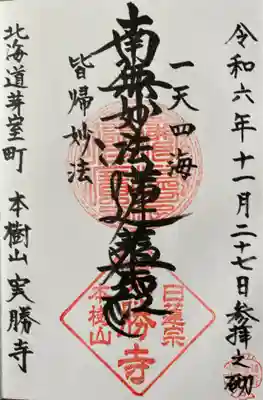 令和六年十一月二十七日参拝之砌
一天四海
南無妙法蓮華経
皆帰妙法
北海道芽室町 本樹山 実勝寺
日蓮宗
勝寺
本樹山